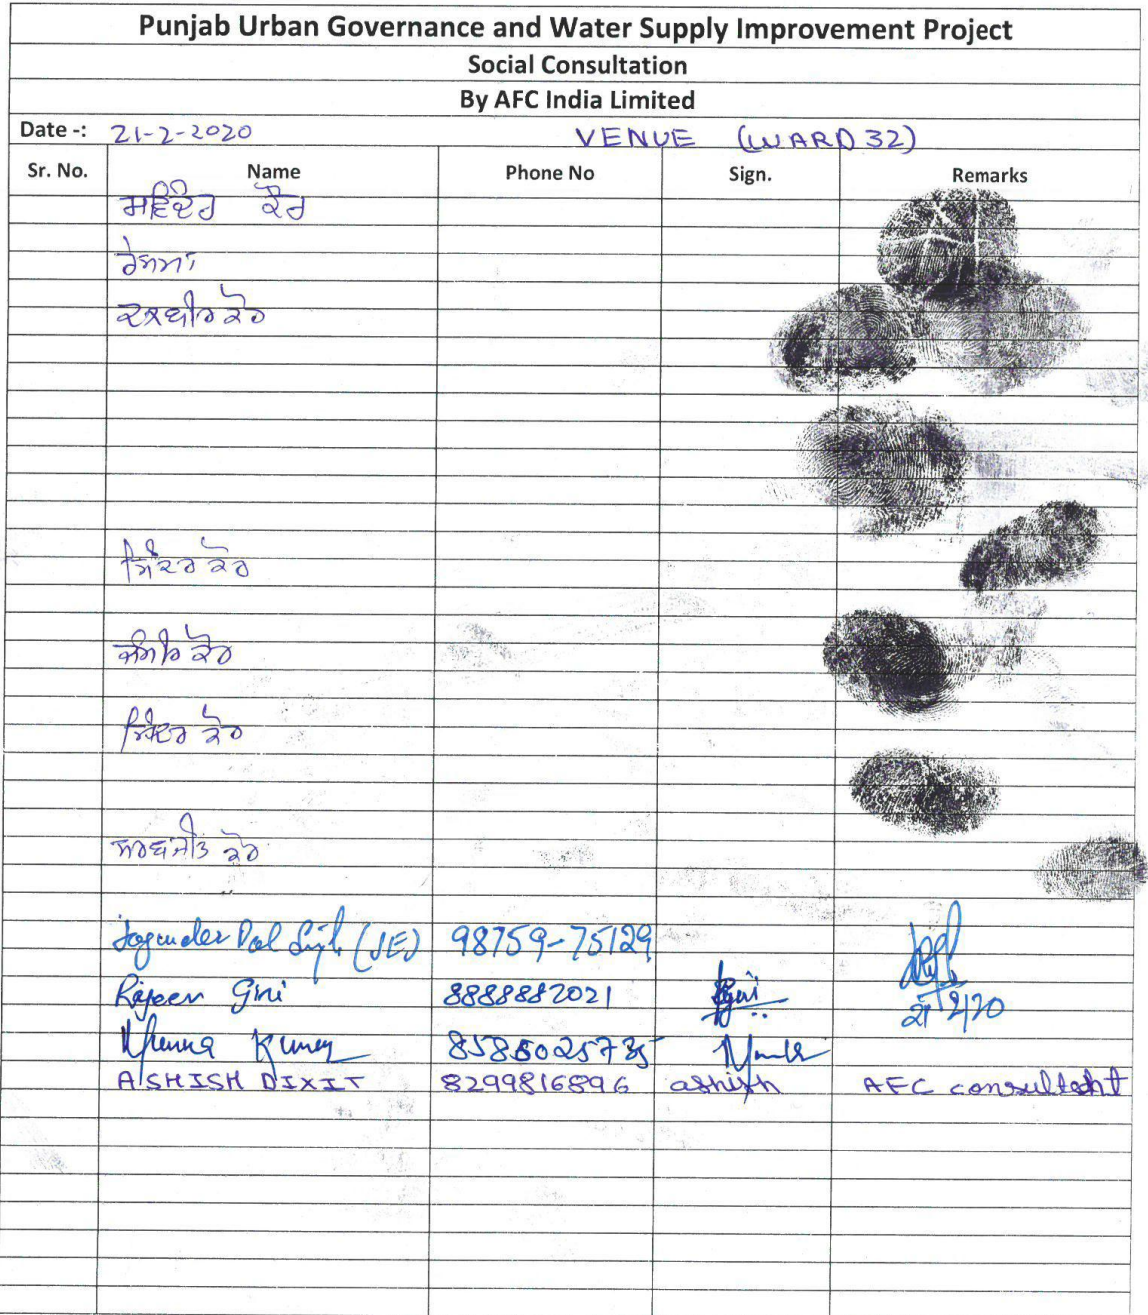 Punjab Urban Governance and Water Supply Improvement Project
Social Consultation
By AFC India Limited
Date -: 21-2-2020 VENUE (WARD 32)
Sr. No. Name Phone No Sign. Remarks
ਸਵਿੰਦਰ ਕੌਰ
ਰੇਸ਼ਮਾ
ਦਲਬੀਰ ਕੌਰ
ਕੌਰ
ਕੌਰ
ਕੌਰ
ਸਰਬਜੀਤ ਕੌਰ
Joginder Pal Singh (JE) 98759-75129
Rajeev Giri 8888882021
21/2/20
Munna Kumar
ASHISH DIXIT 8299816896 ashish AFC consultant